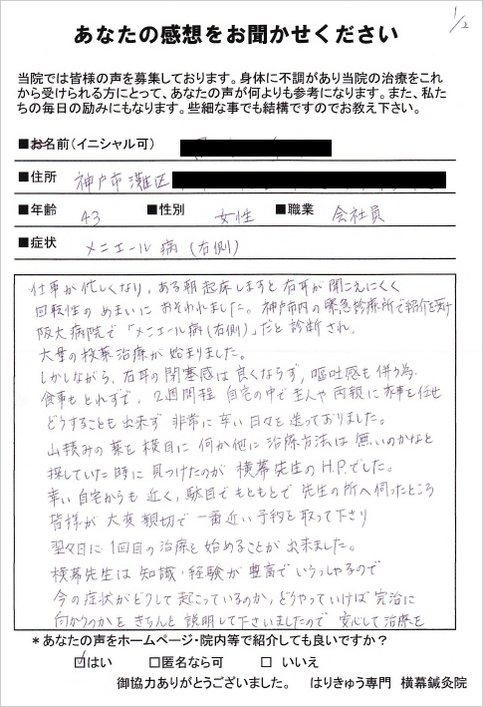 1/2
あなたの感想をお聞かせください
当院では皆様の声を募集しております。身体に不調があり当院の治療をこれ
から受けられる方にとって、あなたの声が何よりも参考になります。また、私た
ちの毎日の励みにもなります。些細な事でも結構ですのでお教え下さい。
■お名前(イニシャル可)
■住所 神戸市灘区
■年齢 43 ■性別 女性 ■職業 会社員
■症状 メニエール病(右側)
仕事が忙しくなり、ある朝起床しますと右耳が聞こえにくく
回転性のめまいにおそわれました。神戸市内の緊急診療所で紹介を受け
阪大病院で「メニエール病(右側)」だと診断され、
大量の投薬治療が始まりました。
しかしながら、右耳の閉塞感は良くならず、嘔吐感も伴う為
食事もとれずで、2週間程 自宅の中で主人や両親に赤事を任せ
どうすることも出来ず 非常に辛い日々を送っておりました。
山積みの薬を横目に 何か他に治療方法は無いのかなと
探していた時に見つけたのが 横幕先生のH.P.でした。
幸い自宅からも近く、駄目でもともとで先生の所へ伺ったところ
皆様が大変親切で一番近い予約を取って下さり
翌々日に1回目の治療を始めることが出来ました。
横幕先生は知識・経験が豊富でいらっしゃるので
今の症状がどうして起こっているのか、どうやっていけば完治に
向かうのかをきちんと説明して下さいましたので 安心して治療を
*あなたの声をホームページ・院内等で紹介しても良いですか?
☑はい □匿名なら可 □いいえ
御協力ありがとうございました。 はりきゅう専門 横幕鍼灸院